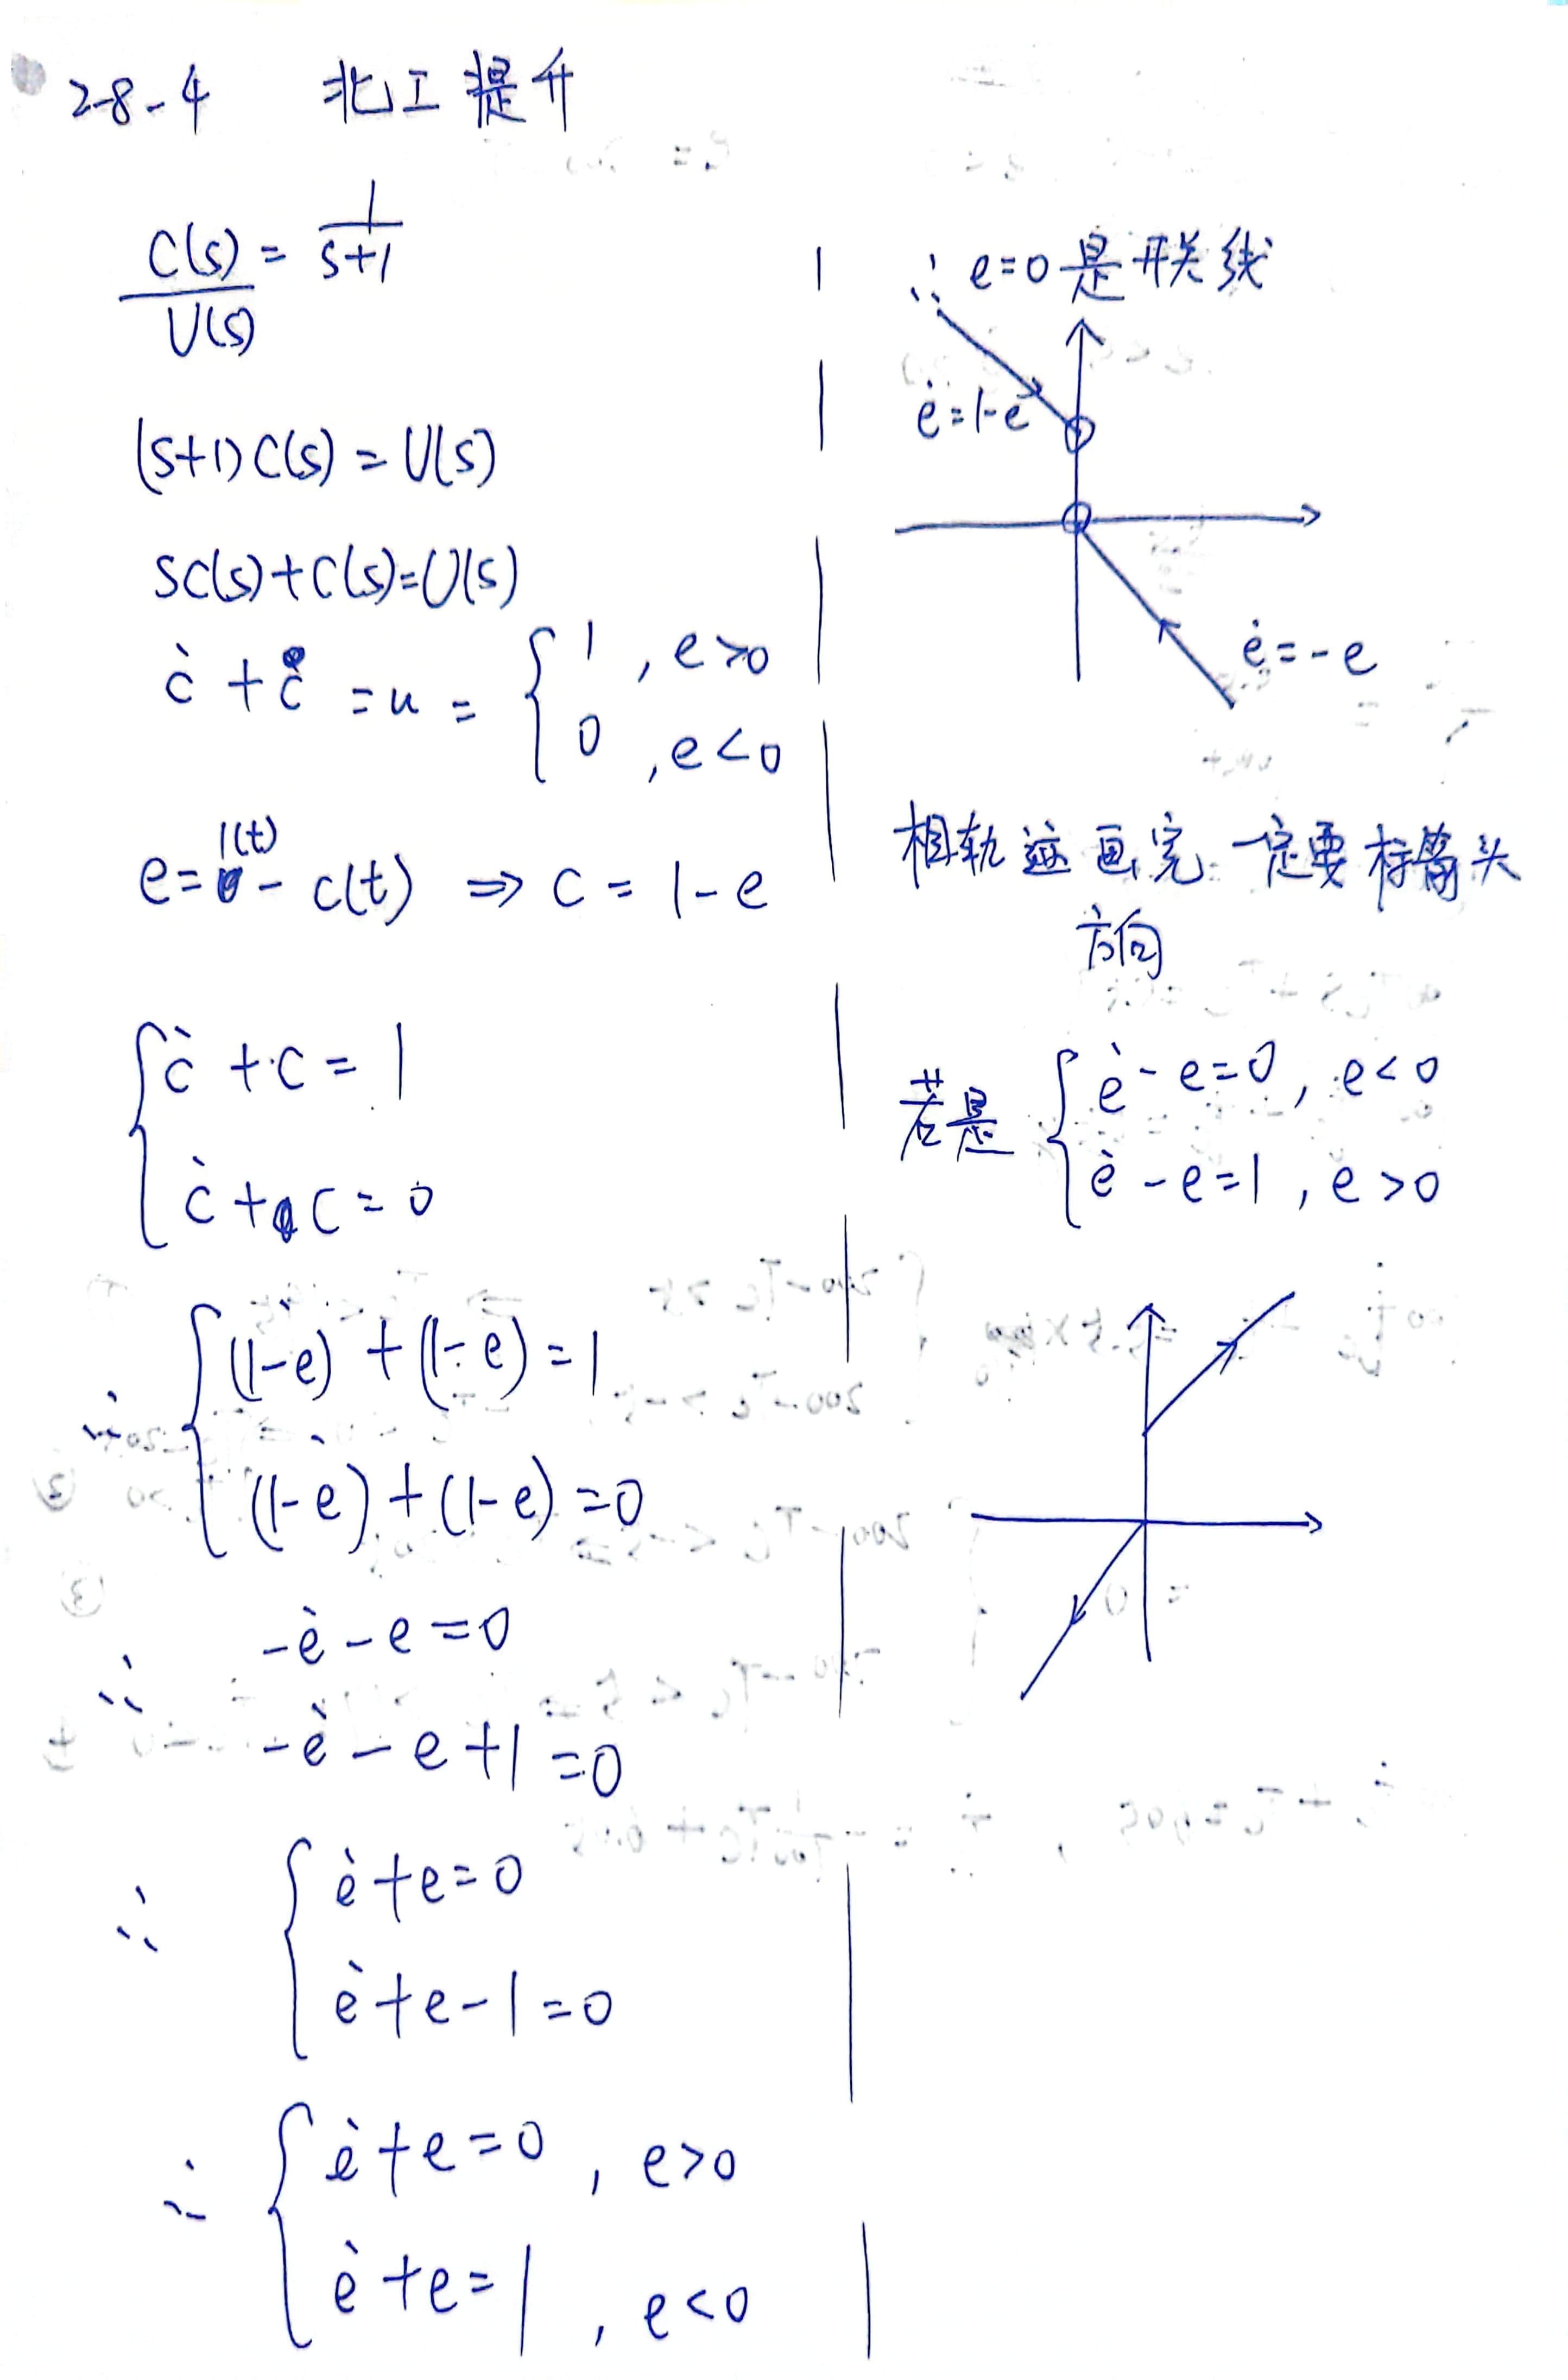 2-8-4 北工提升
C(s)/U(s) = 1/(s+1)
(s+1)C(s) = U(s)
sC(s)+C(s)=U(s)
ċ + c = u = { 1 , e>0
0 , e<0
e = 1(t) - c(t) ⇒ c = 1-e
{ ċ + c = 1
ċ + c = 0
∴ { (1-e)̇ + (1-e) = 1
(1-e)̇ + (1-e) = 0
∴ -ė - e = 0
-ė - e + 1 = 0
∴ { ė + e = 0
ė + e - 1 = 0
∴ { ė + e = 0 , e>0
ė + e = 1 , e<0
∴ e=0是开关线
ė = 1-e
ė = -e
相轨迹画完一定要标箭头
方向
若是 { ė - e = 0 , e<0
ė - e = 1 , e>0